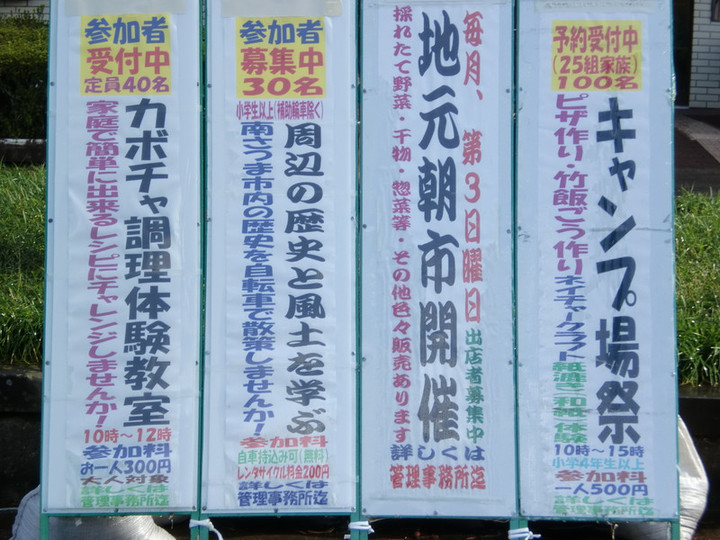 予約受付中
(25組家族)
100名
キャンプ場祭
ピザ作り・竹飯ごう作り
ネイチャークラフト
紙漉き(和紙)体験
10時～15時
小学4年生以上
一人500円
詳しくは
管理事務所迄
毎月、第3日曜日
出店者募集中
地元朝市開催
採れたて野菜・干物・惣菜等・その他色々販売あります
詳しくは
管理事務所迄
参加者
募集中
30名
小学生以上(補助輪車除く)
周辺の歴史と風土を学ぶ
南さつま市内の歴史を自転車で散策しませんか!
参加料
自車持込み可(無料)
レンタサイクル料金200円
詳しくは
管理事務所迄
参加者
受付中
定員40名
カボチャ調理体験教室
家庭で簡単に出来るレシピにチャレンジしませんか!
10時～12時
参加料
お一人300円
大人対象
詳しくは
管理事務所迄